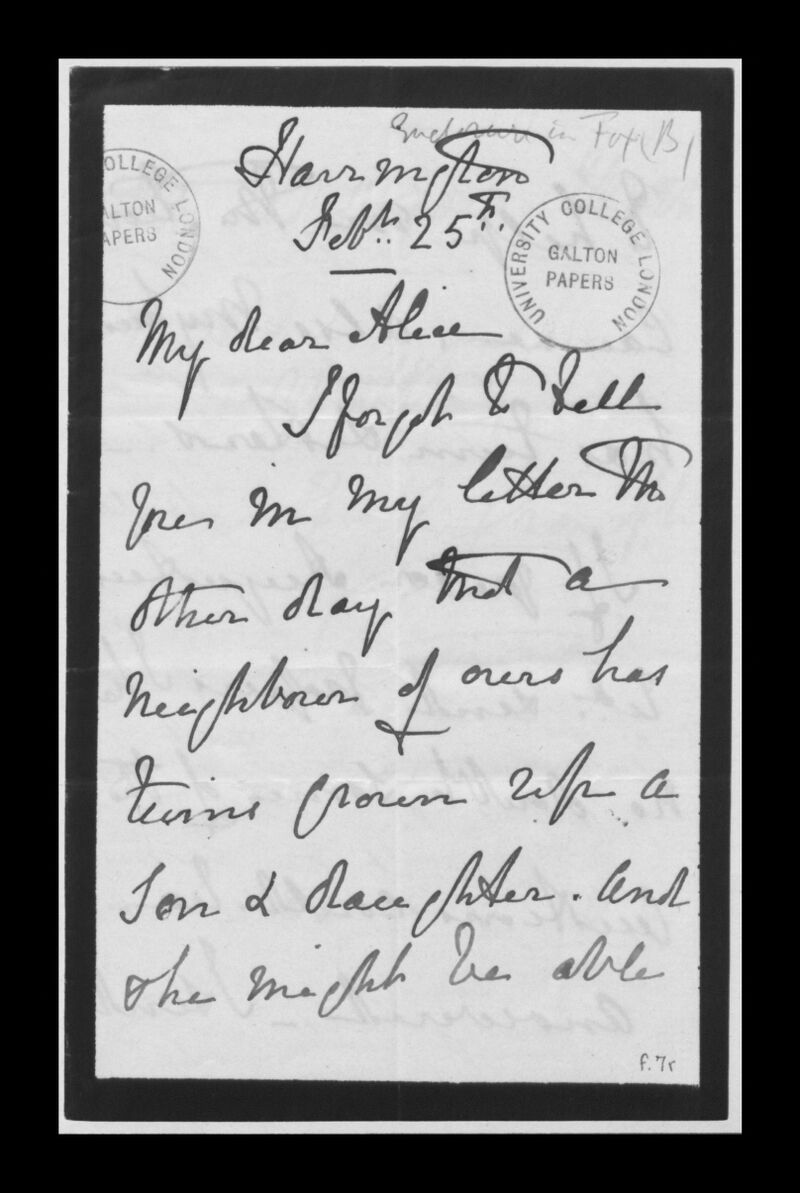 Enclosure in Fox (B)
Harrington
Feb.. 25th..
My dear Alice
I forgot to tell
you in my letter the
other day that a
neighbour of ours has
twins grown up a
son & daughter. And
she might be able
UNIVERSITY COLLEGE LONDON
GALTON
PAPERS
OLLEGE LONDON
ALTON
APERS
f.7r